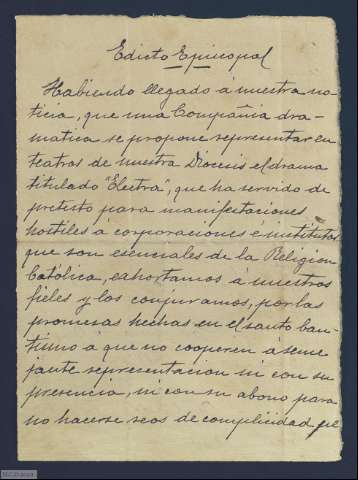 Edicto Episcopal
Habiendo llegado á nuestra no-
ticia, que una Compañia dra-
matica se propone representar en
teatros de nuestra Diócesis el drama
titulado "Electra", que ha servido de
pretisto para manifestaciones
hostiles á corporaciones é institutos
que son esenciales de la Religion
Católica, exhortamos á nuestros
fieles y los conjuramos, por las
promesas hechas en el santo bau-
tismo a que no cooperen á seme
jante representacion ni con su
presencia, ni con su abono para
no hacerse reos de complicidad pe